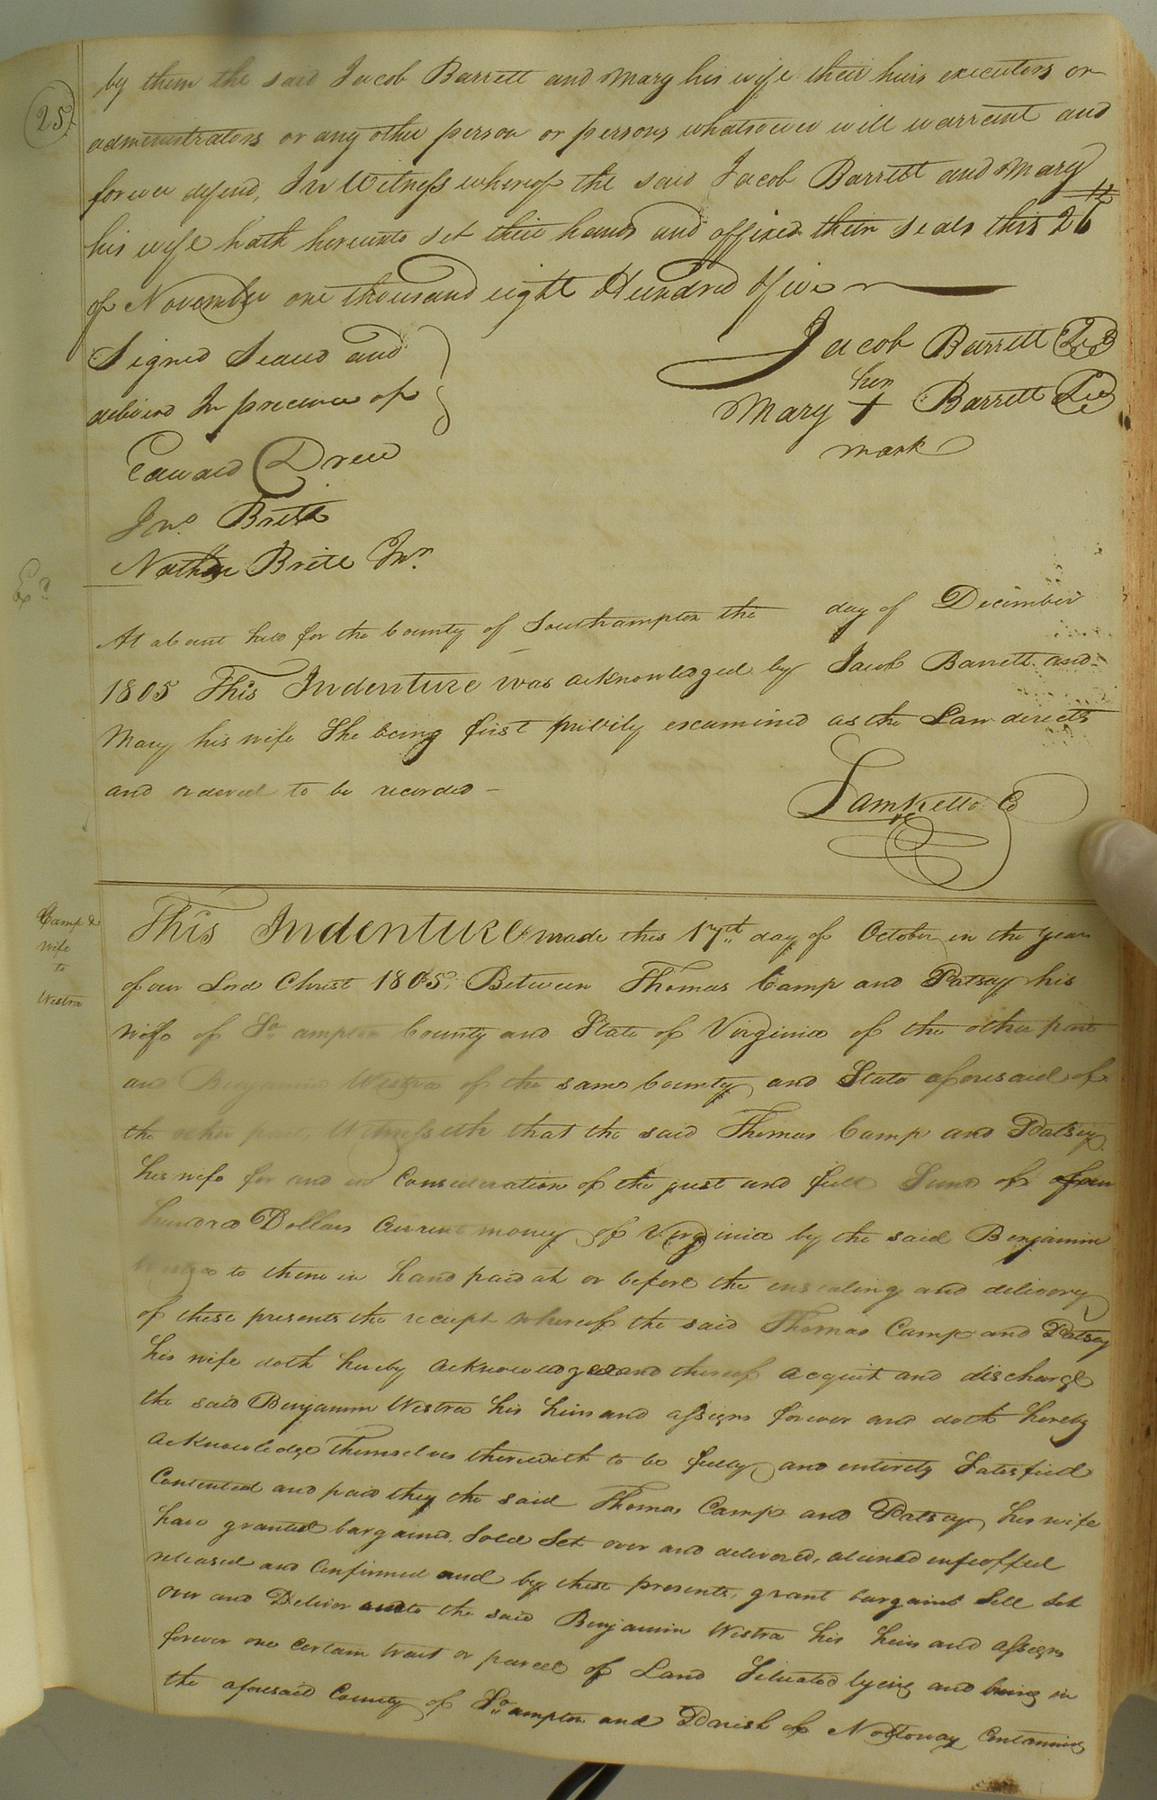 25
by them the said Jacob Barrett and Mary his wife their heirs executors or
administrators or any other person or persons whatsoever will warrant and
forever defend, In Witness whereof the said Jacob Barrett and Mary
his wife hath hereunto set their hands and affixed their seals this 26
of November one thousand eight Hundred & five
Signed Sealed and
delivered In presence of
Jacob Barrett
her
Mary + Barrett
mark
Edward Drew
Jno. Brett
Nathan Brite Jnr.
Ex.d
At a Court held for the County of Southampton the day of December
1805 This Indenture was acknowledged by Jacob Barrett and
Mary his wife She being first privily examined as the Law directs
and ordered to be recorded -
Sam Kello C
Camp &
wife
to
Westra
This Indenture made this 17th day of October in the year
of our Lord Christ 1805, Between Thomas Camp and Patsay his
wife of So.ampton County and State of Virginia of the other part
and Benjamin Westra of the same County and State aforesaid of
the other part, Witnesseth that the said Thomas Camp and Patsay
his wife for and in Consideration of the just and full Sum of
hundred Dollars Current money of Virginia by the said Benjamin
Westra to them in hand paid at or before the ensealing and delivery
of these presents the receipt whereof the said Thomas Camp and Patsay
his wife doth hereby acknowledge and thereof acquit and discharge
the said Benjamin Westra his heirs and assigns forever and doth hereby
acknowledge themselves therewith to be fully and entirely Satisfied
Contented and paid they the said Thomas Camp and Patsay his wife
have granted bargained Sold Set over and delivered, aliened enfeoffed
released and Confirmed and by these presents, grant bargains Sell Set
over and Deliver unto the said Benjamin Westra his heirs and assigns
forever one certain tract or parcel of Land Situated lying and being in
the aforesaid County of So.ampton and Parish of Nottoway Containing